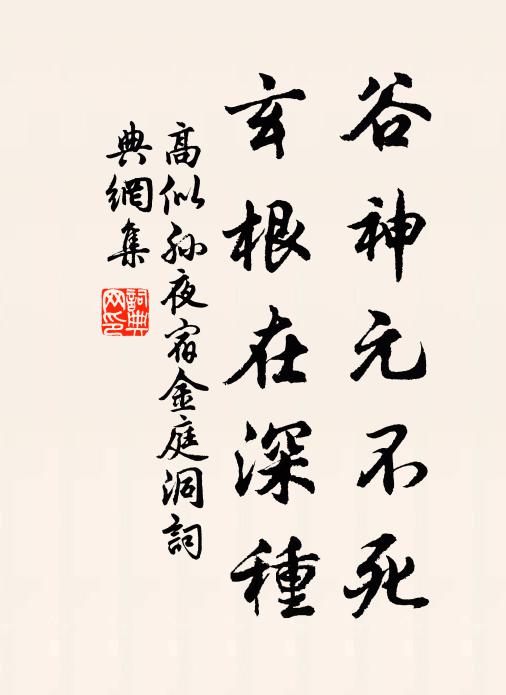 谷神元不死
玄根在深種
高似孙夜宿金庭洞詞
典網集
詞典
网印